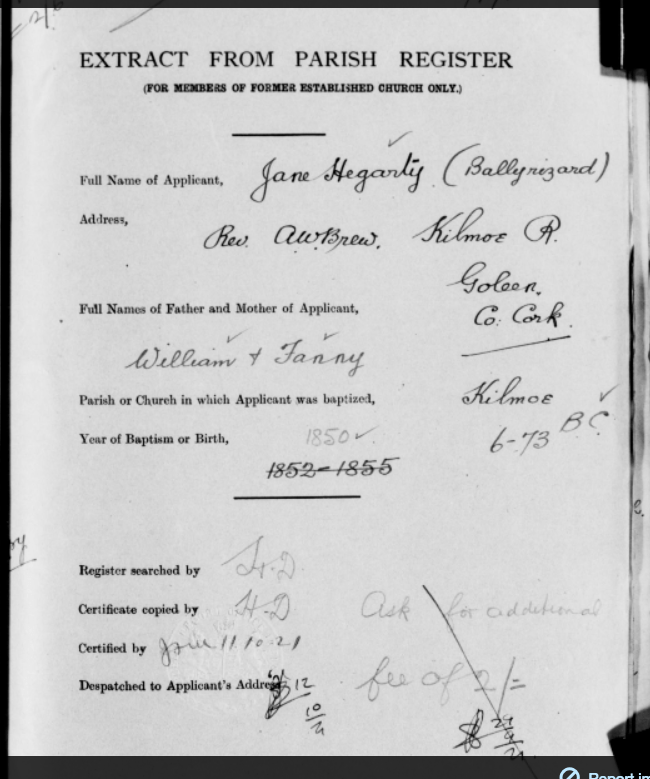 EXTRACT FROM PARISH REGISTER
(FOR MEMBERS OF FORMER ESTABLISHED CHURCH ONLY.)
Full Name of Applicant, Jane Hegarty (Ballyrizard)
Address,
Rev. A.W. Brew, Kilmoe R.
Goleen,
Co. Cork.
Full Names of Father and Mother of Applicant,
William + Fanny
Parish or Church in which Applicant was baptized, Kilmoe
Year of Baptism or Birth, 1850 6-73 B C
1852-1855
Register searched by H.D
Certificate copied by H-D Ask for additional
Certified by 11.10.21
Despatched to Applicant's Address 12
fee of 2/=
10
21
29
9
21
Report im